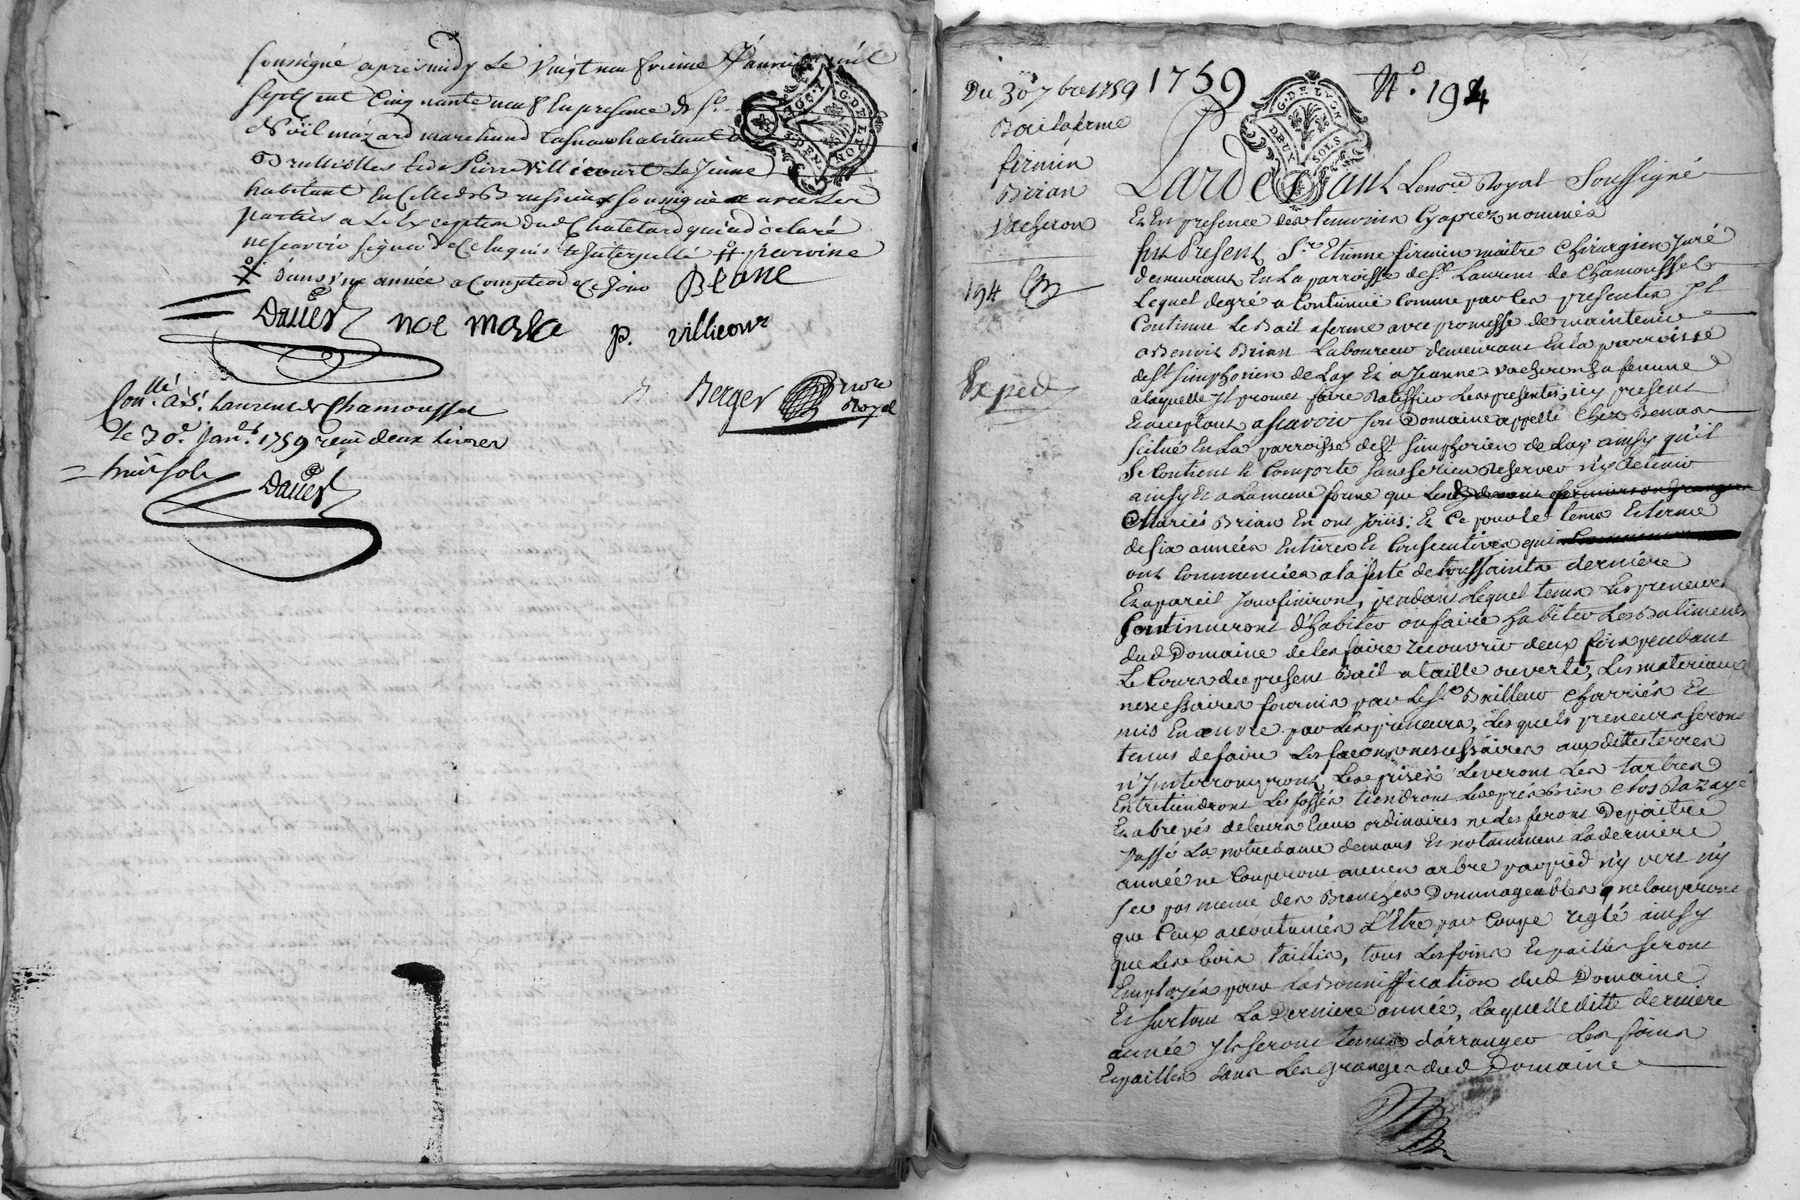 soussigné apres midy le vingt neufvieme Janvier mil
sept cent cinquante neuf en presence de Sr
Noël mazard marchand habitant a
Brullioles et de Pierre Villicourt le Jeune
habitant en celle de Brussieu soussignés avec les
parties a l'exception dud Chatelard qui a déclaré
ne scavoir signer de ce enquis et interpellé
dans une année a compter de ce jour Blanc
Daüer noe masa p. villicour
Berger no.re Royal
Con.llé à St. Laurent de Chamousset
le 30e. Janer. 1759 reçu deux livres
huit sols
Daüer
Du 30 7bre 1759
Bail a ferme
firmin
Brian
Vacheron
194
Exped
1759
No. 194
G. DE LYON
DEUX SOLS
Pardevant Le no.re Royal Soussigné
Et En presence des temoins Cy apres nommés
fut Present, Sr. Etienne firmin maitre Chirurgien Juré
demeurant En La parroisse de St. Laurent de Chamousset
Lequel de gré a Continué comme par les presentes Il
Continue Le Bail a ferme avec promesse de maintenir
a Benoit Brian Laboureur demeurant En la parroisse
de St. Simphorien de Lay Et a Jeanne Vacheron sa femme
a laquelle Il promet faire Ratiffier Les presentes, icy present
Et acceptant a scavoir son Domaine appellé Chez Benas
Situé En La parroisse de St. Simphorien de Lay ainsy qu'il
Se Contient et Comporte sans se rien Reserver n'y detenir
ainsy Et a la meme forme que Lesd
Mariés Brian En ont Joüis: Et Ce pour le tems Et terme
de six années Entieres Et Consecutives qui
ont Commencées a la feste de toussaints derniere
Et a pareil Jour finiront, pendant lequel tems Les preneurs
Continueront d'habiter ou faire habiter Les Batiments
dud Domaine de les faire recouvrir deux fois pendant
Le Cours du present Bail a taille ouverte, Les materiaux
necessaires fournis par Le Sr. Bailleur Charriés Et
mis En œuvre par Les preneurs, Lesquels preneurs seront
tenus de faire Les façons necessaires aux dittes terres
n'Interromperont Les prises Leveront Les
Entretiendront Les fossés tiendront Les prés Bien Clos
Et abrevés de leurs Eaux ordinaires ne Les feront Depaitre
Passé La notre dame de mars Et notamment La derniere
année ne Couperont aucun arbre par pied n'y vert n'y
sec pas meme des Branches Dommageables, ne Couperont
que Ceux accoutumés d'Etre par Coupe reglé ainsy
que Les bois taillis, tous Les foins Et pailles seront
Employés pour La Bonniffication dud Domaine
Et surtout La Derniere année, Laquelle ditte derniere
année Ils seront tenus d'arranger Les foins
Et pailles dans Les granges dud Domaine